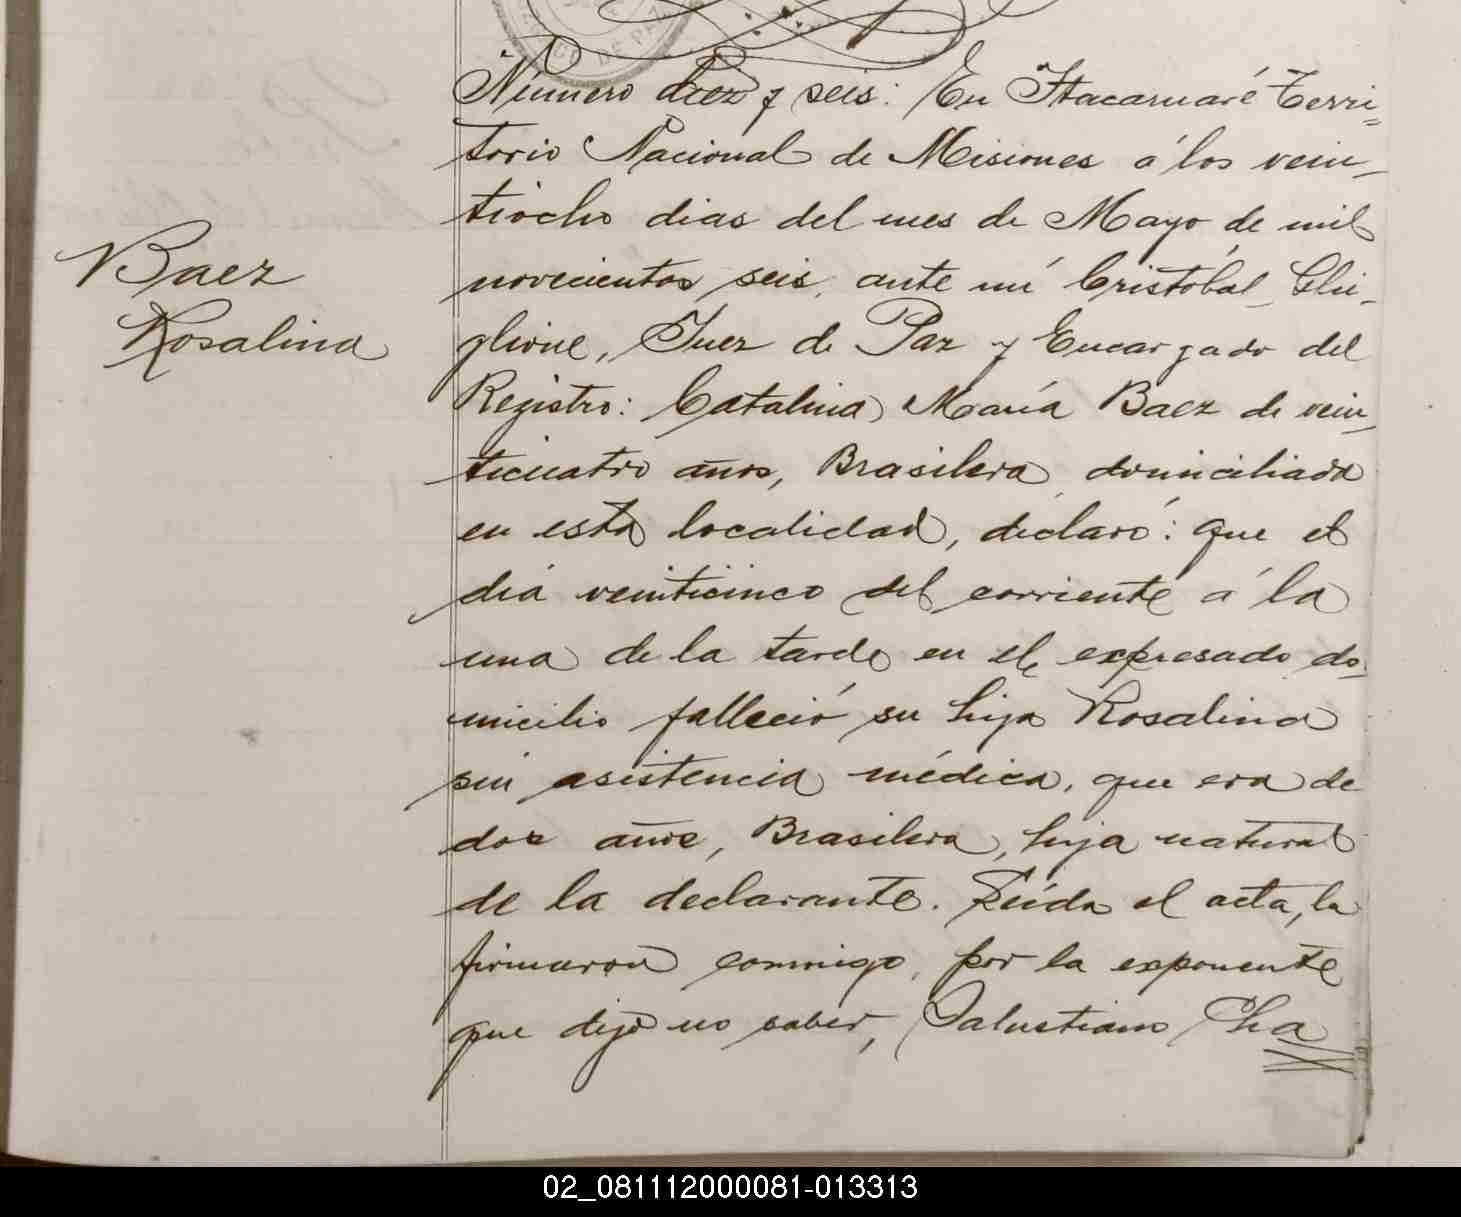 Número diez y seis: En Itacaruaré Terri=
torio Nacional de Misiones á los vein-
tiocho dias del mes de Mayo de mil
novecientos seis, ante mí Cristóbal Ghi-
glione, Juez de Paz y Encargado del
Registro: Catalina María Baez de vein-
ticuatro años, Brasilera, domiciliada
en esta localidad, declaró: que el
día veinticinco del corriente á la
una de la tarde en el expresado do-
micilio falleció su hija Rosalina
sin asistencia médica, que era de
dos años, Brasilera, hija natural
de la declarante. Leída el acta, la
firmaron conmigo, por la exponente
que dijo no saber, Salustiano Cha
Baez
Rosalina
02_081112000081-013313